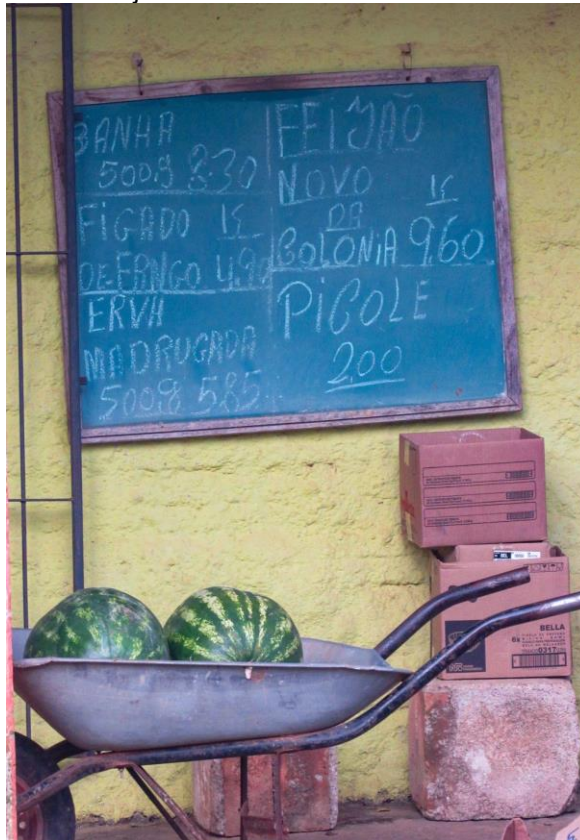 BANHA
500g 8.30
FIGADO 1K
DE FRNGO 4.90
ERVA
MADRUGADA
500g 5.85
FEIJÃO
NOVO 1K
DA
COLONIA 9.60
PICOLE
2.00
BELLA
0317